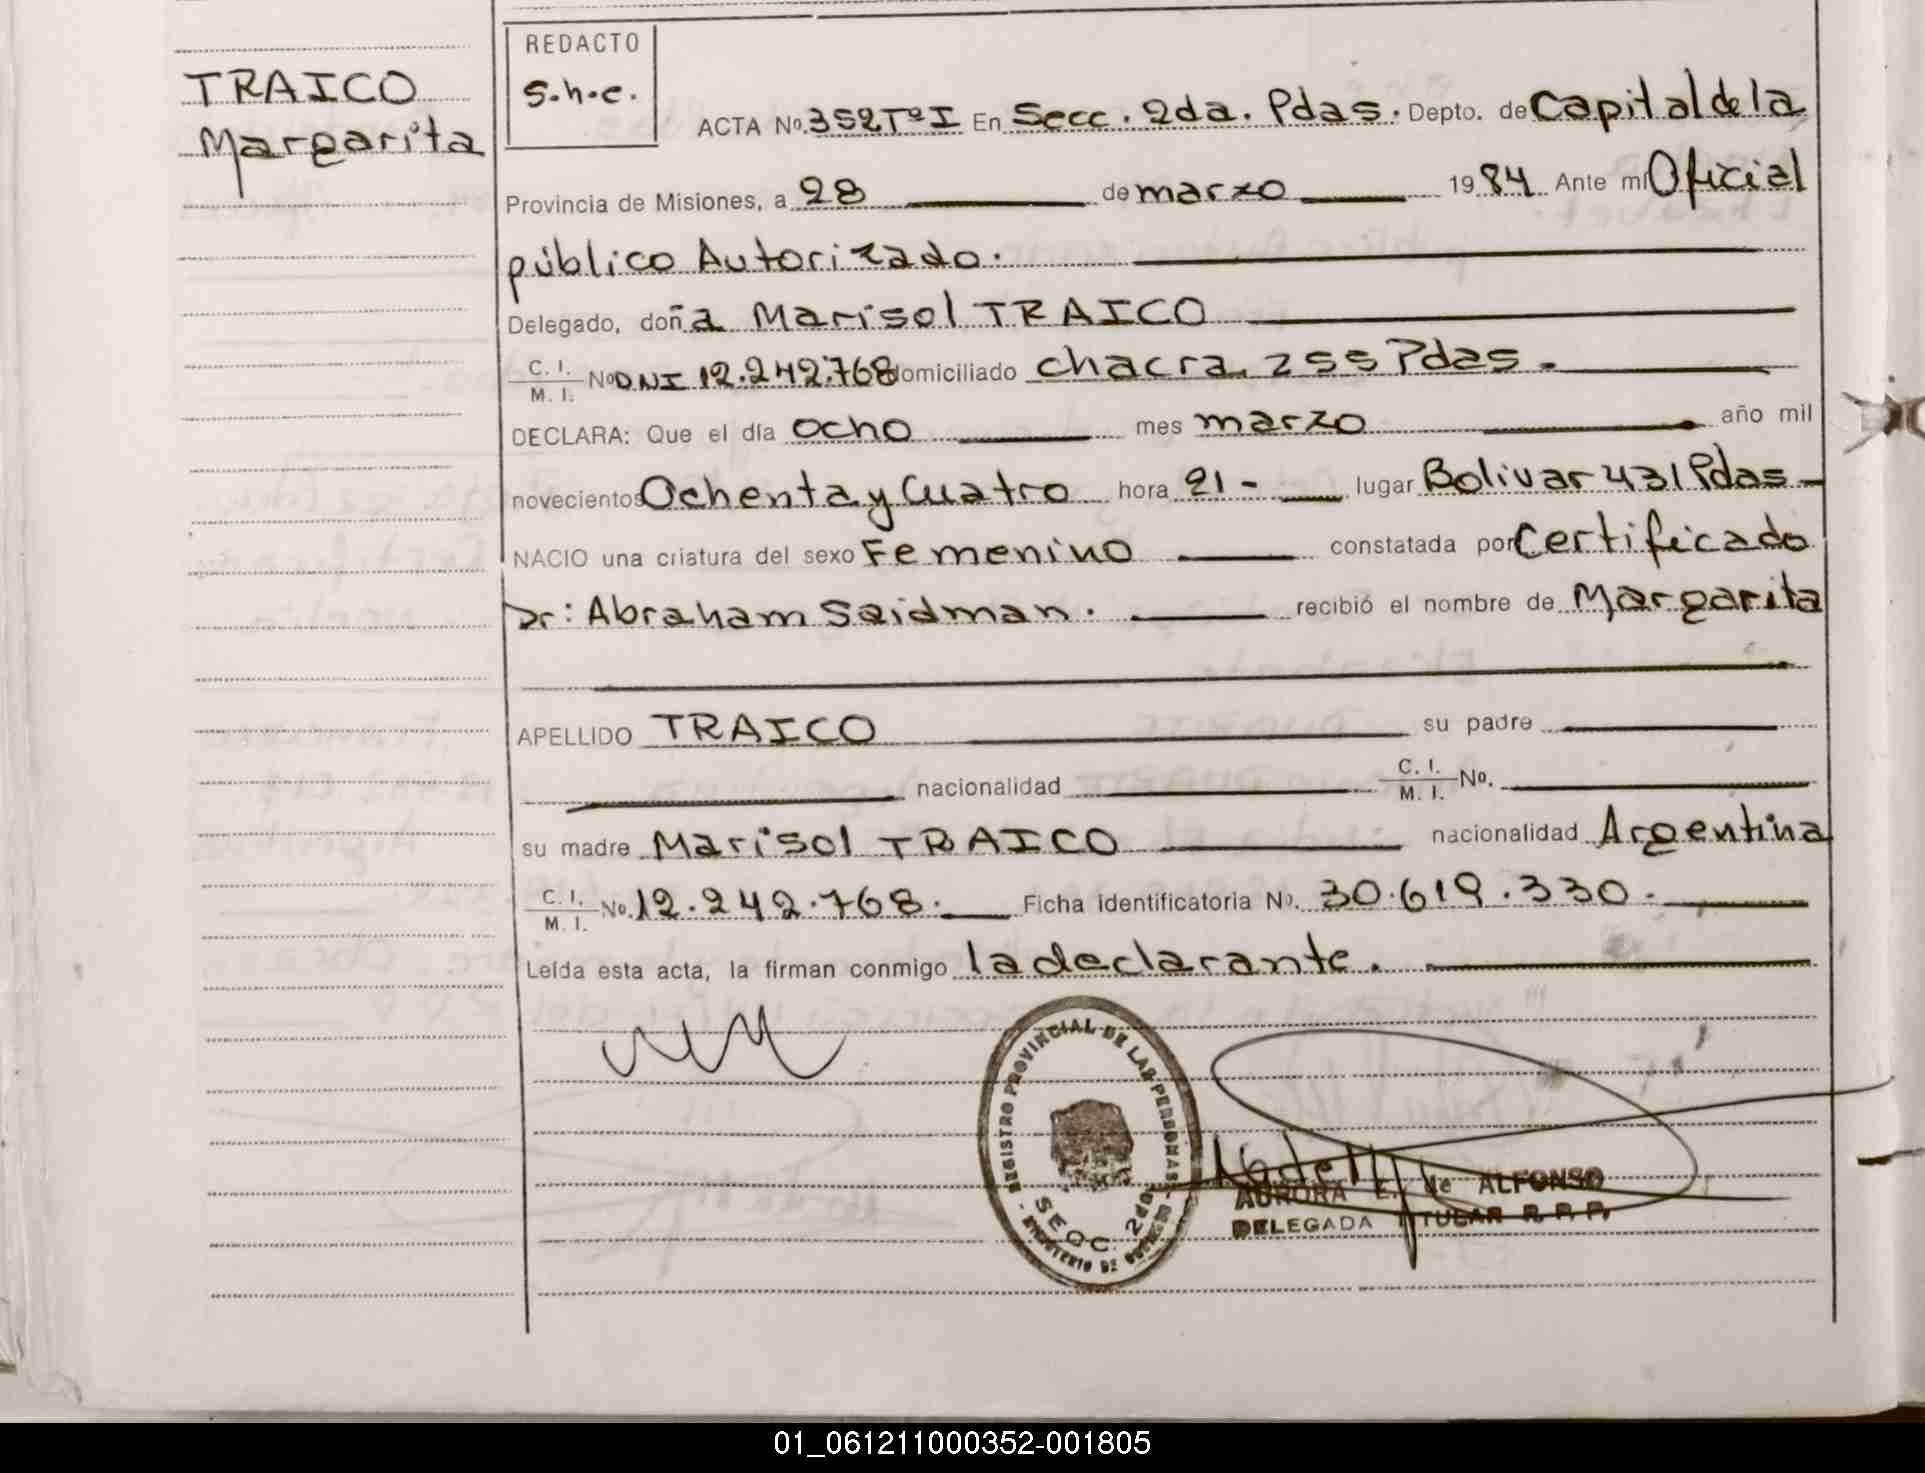 TRAICO
Margarita
REDACTO
S.h.e.
ACTA Nº 352 Tº I En Secc. 2da. Pdas. Depto. de Capital de la
Provincia de Misiones, a 28 de marzo 1984 Ante mi Oficial
público Autorizado.
Delegado, doña Marisol TRAICO
C. I. / M. I. Nº DNI 12.242.768 domiciliado chacra 255 Pdas.
DECLARA: Que el día ocho mes marzo año mil
novecientos Ochenta y Cuatro hora 21 - lugar Bolivar 431 Pdas -
NACIO una criatura del sexo Femenino constatada por Certificado
Dr: Abraham Saidman. recibió el nombre de Margarita
APELLIDO TRAICO su padre
nacionalidad C. I. / M. I. Nº.
su madre Marisol TRAICO nacionalidad Argentina
C. I. / M. I. Nº. 12.242.768. Ficha identificatoria Nº. 30.619.330.
Leída esta acta, la firman conmigo la declarante.
REGISTRO PROVINCIAL DE LAS PERSONAS
MINISTERIO DE GOBIERNO
SECC. 2da
AURORA E. de ALFONSO
DELEGADA TITULAR R. P. P.
01_061211000352-001805